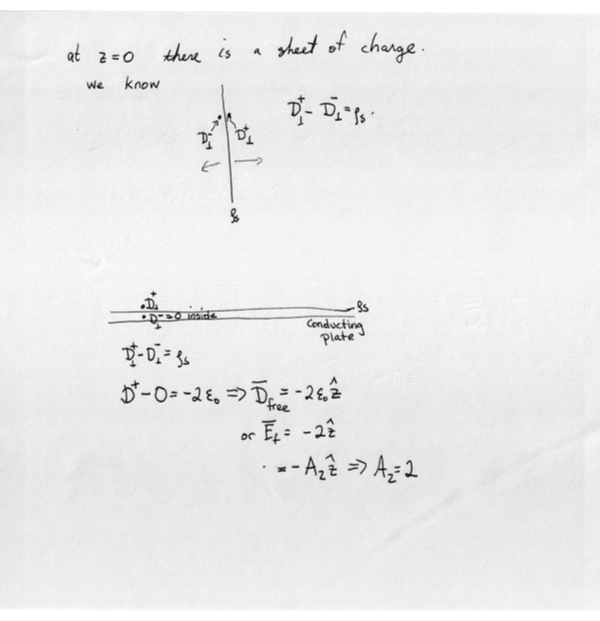 at z=0 there is a sheet of charge.
we know
D⊥⁺ - D⊥⁻ = ρs.
D⊥⁻ D⊥⁺
ρs
D⊥⁺ ρs
D⊥⁻ = 0 inside
Conducting
plate
D⊥⁺ - D⊥⁻ = ρs
D⁺ - 0 = -2ε₀ ⇒ D̄free = -2ε₀ẑ
or Ēf = -2ẑ
= -A₂ẑ ⇒ A₂ = 2